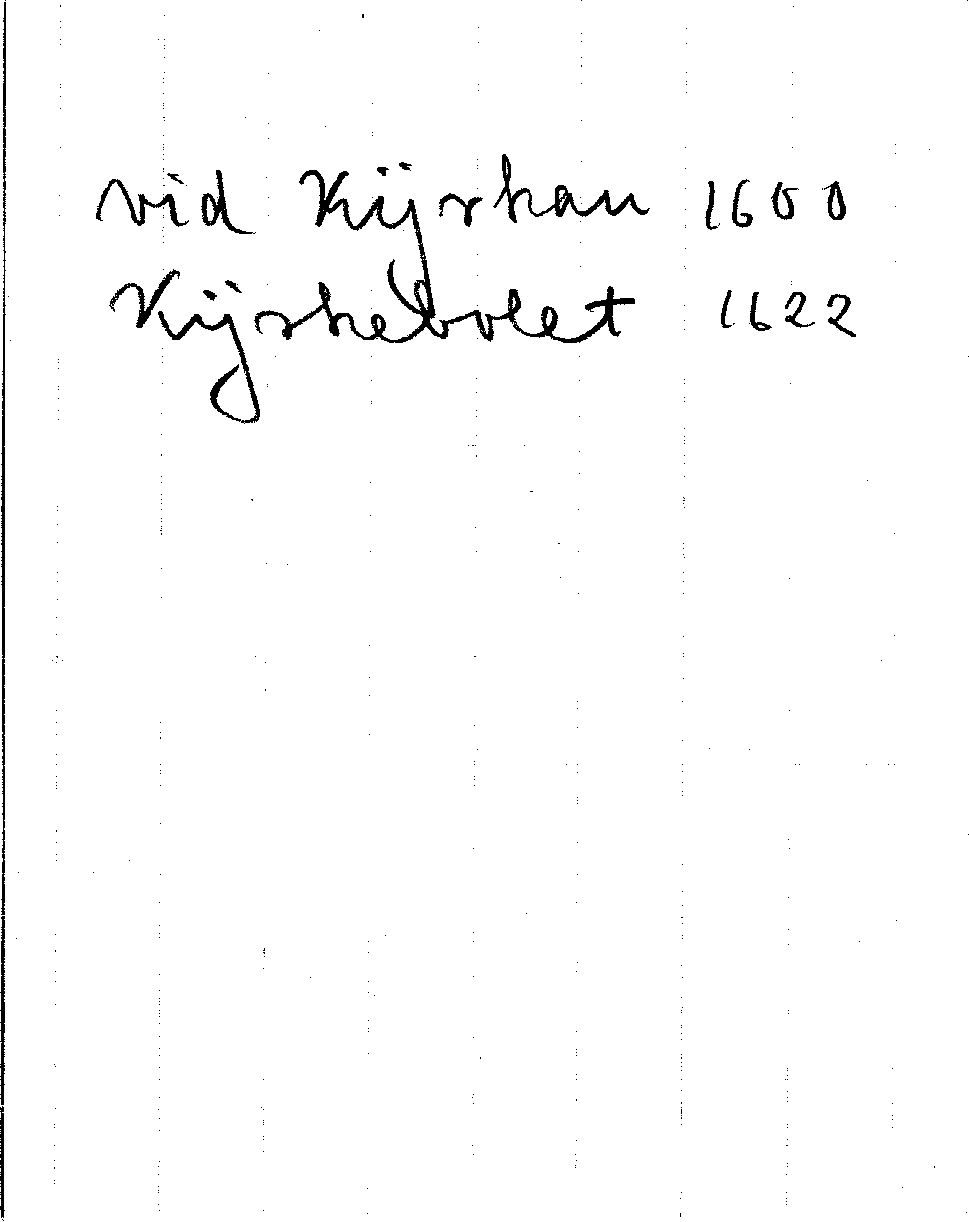 vid Kijrkan 1600
Kijrkebolet 1622